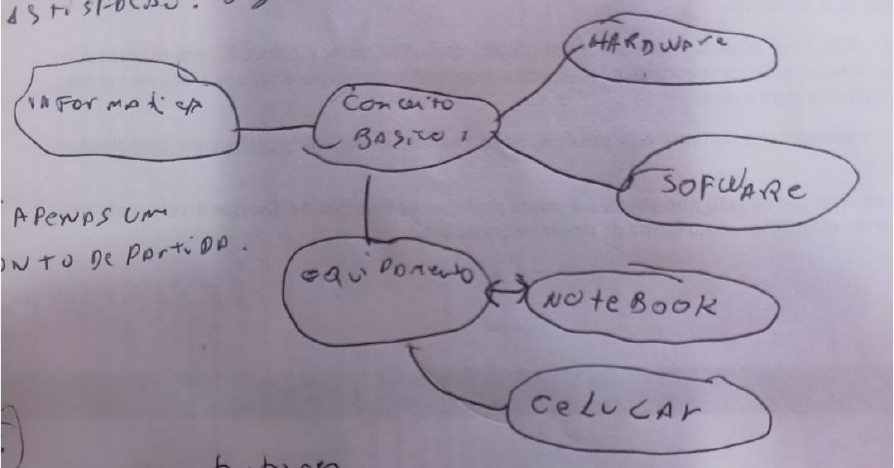 HARDWARE
INFORMATICA
Conceito
BASICO:
SOFWARE
APENAS UM
ONTO DE PARTIDA.
equipamento
NOTEBOOK
CELULAR